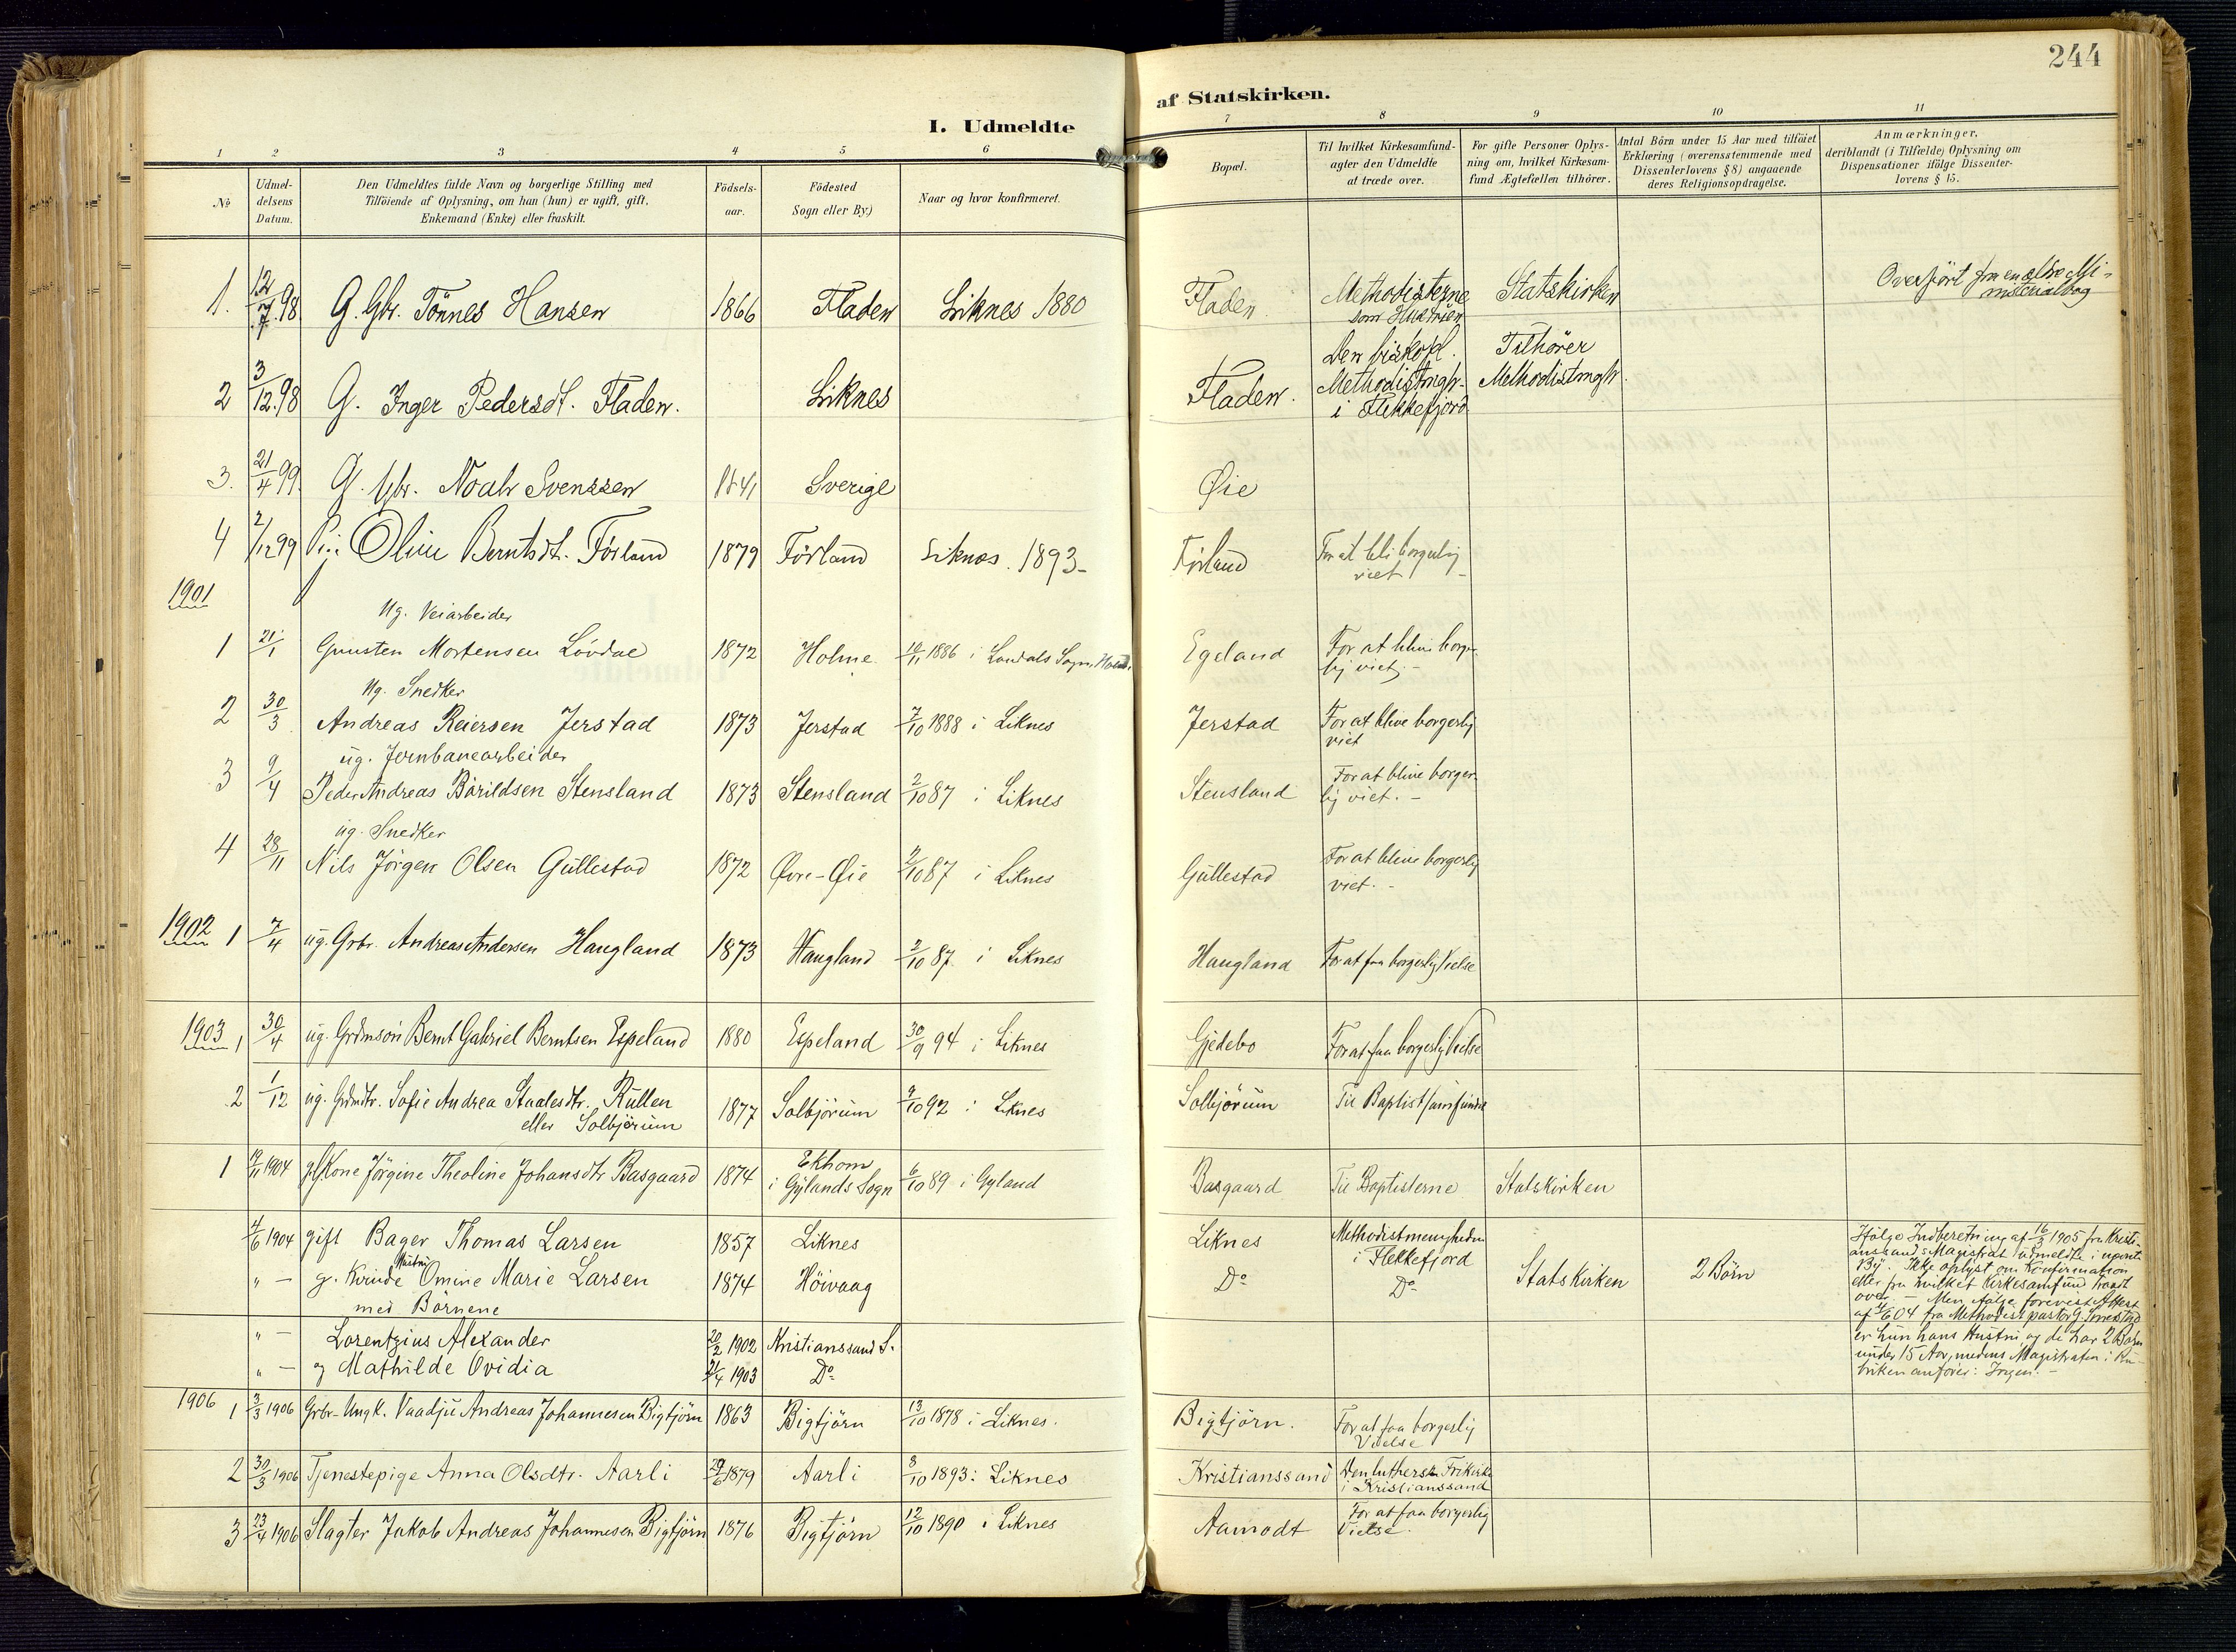 244
I. Udmeldte
af Statskirken.
1 2 3 4 5 6
7 8 9 10 11
No
Udmel-
delsens
Datum.
Den Udmeldtes fulde Navn og borgerlige Stilling med
Tilføiende af Oplysning, om han (hun) er ugift, gift,
Enkemand (Enke) eller fraskilt.
Fødsels-
aar.
Fødested
Sogn eller By.)
Naar og hvor konfirmeret.
Bopæl.
Til hvilket Kirkesamfund-
agter den Udmeldte
at træde over.
For gifte Personer Oplys-
ning om, hvilket Kirkesam-
fund Ægtefællen tilhører.
Antal Börn under 15 Aar med tilføiet
Erklæring (overensstemmende med
Dissenterlovens § 8) angaaende
deres Religionsopdragelse.
Anmærkninger,
deriblandt (i Tilfælde) Oplysning om
Dispensationer ifølge Dissenter-
lovens § 15.
1. 12/7 98 G. Gbr. Tönnes Hansen 1866 Fladen Liknes 1880 Fladen. Methodisterne som Hustruen Statskirken Overført fra en ældre Mi-
nisterialbog
2 3/12 98 G. Inger Pedersdt. Fladen. Liknes Fladen. Den biskopl. Methodistmgh. i Flekkefjord Tilhører Methodistmgh.
3. 21/4 99. G. Gbr. Noah Svenssen 1841 Sverige Øie
4 2/12 99 Pige Oline Berntsdt. Förland 1879 Förland Liknes. 1893- Förland For at bli borgerlig viet -
1901
Ug. Veiarbeider
1 21/1 Gunsten Mortensen Lövdal 1872 Holme. 1886 i Laudals Sogn, Egeland For at blive borger-
lig viet. -
Ug. Snedker
2 30/3 Andreas Reiersen Jerstad 1873 Jerstad 7/10 1888 i Liknes Jerstad For at blive borgerlig
viet
ug. Jernbanearbeider
3 9/4 Peder Andreas Börildsen Stensland 1873 Stensland 2/10 87 i Liknes Stensland For at blive borger-
lig viet. -
ug. Snedker
4 28/11 Nils Jörgen Olsen Gullestad 1872 Øvre-Øie 2/10 87 i Liknes Gullestad For at blive borgerlig
viet. -
1902 1 7/4 ug. Grbr. Andreas Andersen Haugland 1873 Haugland 2/10 87 i Liknes Haugland For at faa borgerlig Vielse
1903 1 30/4 ug. Grdmsön Bernt Gabriel Berntsen Espeland 1880 Espeland 30/9 94 i Liknes Gjedebo For at faa borgerlig Vielse
2 1/12 ug. Grdmdtr. Sofie Andrea Staalesdtr. Rullen
eller Solbjörum 1877 Solbjörum 9/10 92 i Liknes Solbjörum Til Baptistsamfundet
1 1904 gift Kone Jörgine Theoline Johansdtr Basgaard 1874 Ekhom
i Gylands Sogn 6/10 89 i Gyland Basgaard Til Baptisterne Statskirken
4/6 1904 gift Bager Thomas Larsen 1857 Liknes Liknes Methodistmenigheden
i Flekkefjord
" - g. Kvinde Hustru Omine Marie Larsen 1874 Höivaag Do Do Statskirken 2 Börn
med Börnene
" - Lorentzius Alexander 20/2 1902 Kristianssand S.
" - og Mathilde Ovidia 21/4 1903 Do
Ifølge Indberetning af 16/3 1905 fra Kristi-
anssands Magistrat udmeldte i nævnte
By. Ikke oplyst om Konfirmation
eller fra hvilket Kirkesamfund traadt
over. - Men ifølge forevist Attest
af 4/6 04 fra Methodistpastor G. Smestad
er hun hans Hustru og de har 2 Børn
under 15 Aar, medens Magistraten i Ru-
briken anfører: Ingen. -
1906 1 3/3 1906 Grbr- Ungk. Vaadju Andreas Johannesen Bigtjörn 1863 Bigtjörn 13/10 1878 i Liknes. Bigtjörn. For at faa borgerlig
Vielse
2 30/3 1906 Tjenestepige Anna Olsdtr. Aarli 29/6 1879 Aarli 8/10 1893 i Liknes Kristianssand Den lutherske Frikirke
i Kristianssand
3 23/4 1906 Slagter Jakob Andreas Johannesen Bigtjörn 1876 Bigtjörn 12/10 1890 i Liknes Aamodt For at faa borgerlig
Vielse.